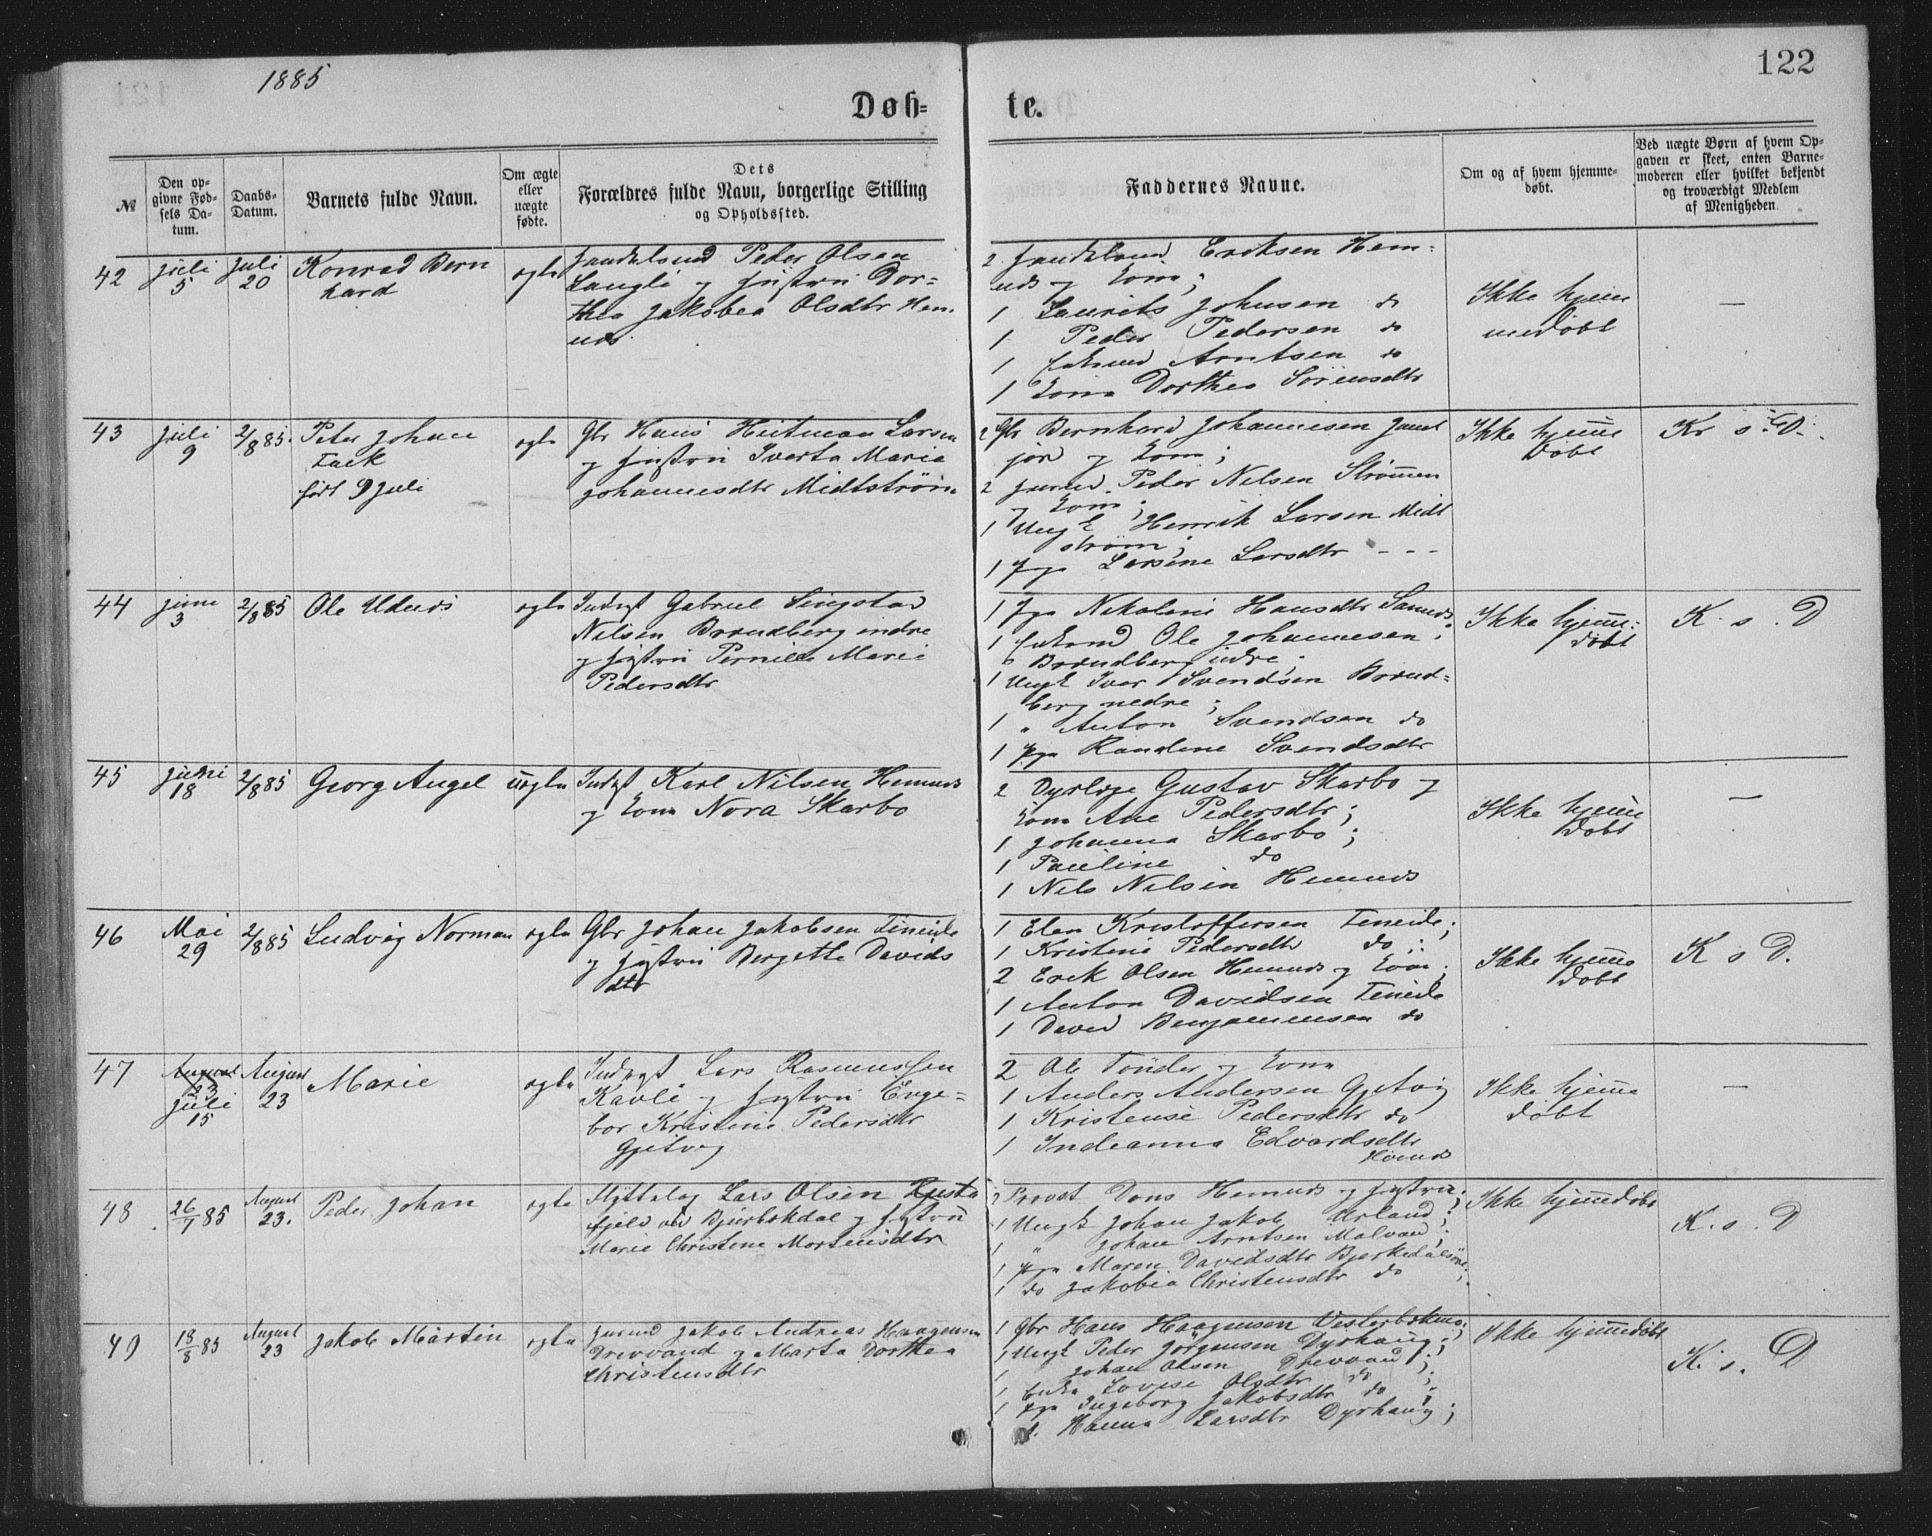 1885
122
Døb-
te.
№
Den op-
givne Fød-
sels Da-
tum.
Daabs-
Datum.
Barnets fulde Navn.
Om ægte
eller
uægte
fødte.
Dets
Forældres fulde Navn, borgerlige Stilling
og Opholdssted.
Faddernes Navne.
Om og af hvem hjemme-
døbt.
Ved uægte Børn af hvem Op-
gaven er skeet, enten Barne-
moderen eller hvilket bekjendt
og troværdigt Medlem
af Menigheden.
42
Juli
5
Juli
20
Konrad Bern
hard
ægte
Peder Olsen
Langli og Hustru Dor-
thea Jakobea Olsdtr Hem
nds
2 Eriksen Hem-
nds og Kone;
1 Laurits Johnsen do
1 Peder Pedersen do
1 Arntsen do
1 Kone Dorthea Sørensdtr
Ikke hjem
medøbt
—
43
Juli
9
2/8 85.
Peter Johan
Falk
født 9 Juli
ægte
Gbr Hans Hitman Larsen
og Hustru Iverta Marie
Johannesdtr Midtstrøm
2 Gbr Bernhard Johannesen
jor og Kone;
2 Peder Nilsen Strømmen
og Kone;
1 Ungk Henrik Larsen Midt
strøm;
1 Pge Larsine Larsdtr - - -
Ikke hjemme
døbt
K. s. D.
44
Juni
3
2/8 85
Ole
ægte
Inderst Gabriel Singstad
Nilsen Brendberg indre
og Hustru Pernille Marie
Pedersdtr
1 Pge Nikoline Hansdtr
1 Enkemd Ole Johannesen
Brendberg indre;
1 Ungk Iver Svendsen Brend-
berg nedre;
1 " Anton Svendsen do
1 Pge Randine Svendsdtr
Ikke hjemme-
døbt
K. s. D
45
Juni
18
2/8 85
Georg Angel
uægte
Inderst Karl Nilsen Hemnds
og Kone Nora Skarbo
2 Dyrlæge Gustav Skarbo og
Kone Ane Pedersdtr;
1 Johanna Skarbo;
1 Pauline do
1 Nils Nilsen Hemnds
Ikke hjemme
døbt
—
46
Mai
29
2/8 85
Ludvig Norman
ægte
Gbr Johan Jakobsen Fineide
og Hustru Bergette Davids
dtr
1 Elen Kristoffersen Fineide;
1 Kristine Pedersdtr do;
2 Erik Olsen Hemnds og Kone;
1 Anton Davidsen Fineide
1 David Benjaminsen do
Ikke hjemme
døbt
K s D.
47
August
23
Juli
15
August
23
Marie
ægte
Inderst Lars Rasmussen
Kavli og Hustru Enge-
bor Kristine Pedersdtr
Gjetvig
2 Ole Tønder og Kone
1 Anders Andersen Gjetvig
1 Kristense Pedersdtr do
1 Indianna Edvardsdtr
Hemnds
Ikke hjemme
døbt
—
48
26/7 85
August
23.
Peder Johan
ægte
Flyttelap Lars Olsen
fjeld ved Bjerkedal og Hustru
Marie Christene Mortensdtr
2 Provst Dons Hemnds og Hustru;
1 Ungk Johan Jakob Urland;
1 " Johan Arntsen Molvand;
1 Pge Maren Davidsdtr Bjerkedalsøre;
1 do Jakobia Christensdtr do;
Ikke hjemmedøbt
K. s. D
49
18/8 85
August
23
Jakob Martin
ægte
Jakob Andreas Haagensen
Drevvand og Marta Dorthea
Christensdtr
1 Gbr Hans Haagensen
1 Ungk Peder Jørgensen Dyrhaug;
1 Johan Olsen Drevvand;
1 Enke Lovise Olsdtr do;
1 Pge Ingeborg Jakobsdtr do;
1 Hanna Larsdtr Dyrhaug;
Ikke hjemmedøbt
K. s. D